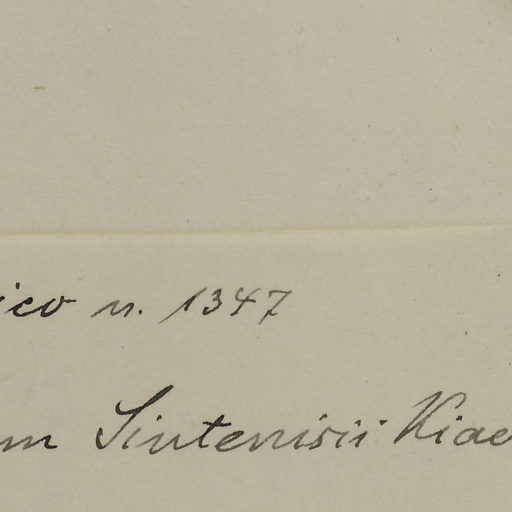 ico n. 1347
m Sintenisii Kiae